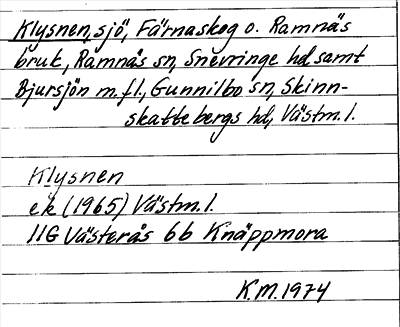 Klysnen, sjö, Färnaskog o. Ramnäs
bruk, Ramnäs sn, Snevringe hd samt
Bjursjön m.fl., Gunnilbo sn, Skinn-
skattebergs hd, Västm. l.
Klysnen
ek (1965) Västm. l.
11G Västerås 6b Knäppmora
K.M. 1974